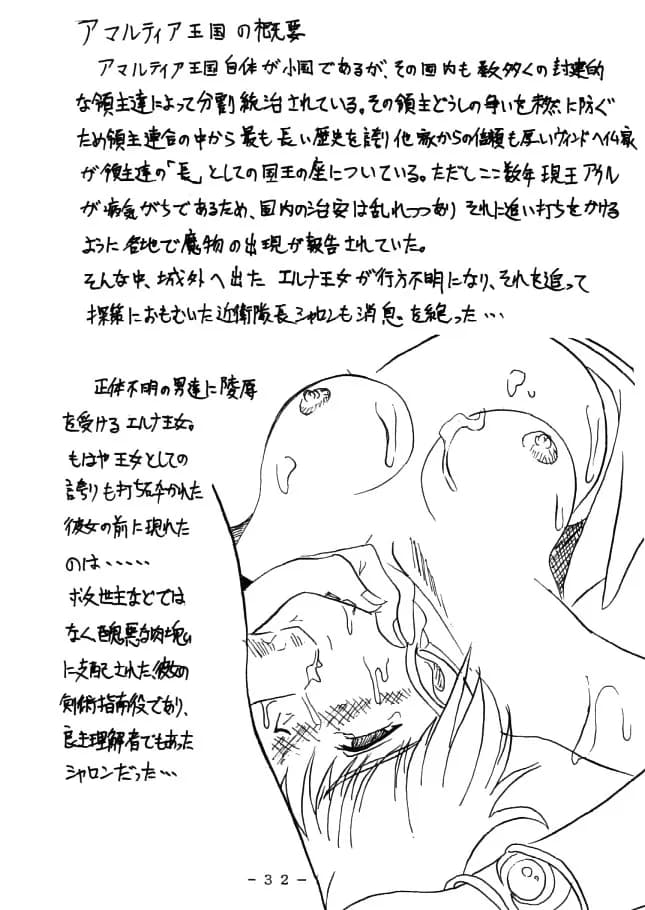 アマルティア王国の概要
アマルティア王国自体が小国であるが、その国内も数多くの封建的
な領主達によって分割統治されている。その領主どうしの争いを未然に防ぐ
ため領主連合の中から最も長い歴史を誇り他家からの信頼も厚いウィンドヘイム家
が領主達の「長」としての国王の座についている。ただしここ数年現王アグル
が病気がちであるため、国内の治安は乱れつつあり それに追い打ちをかける
ように各地で魔物の出現が報告されていた。
そんな中、城外へ出た エルナ王女が行方不明になり、それを追って
探索におもむいた近衛隊長シャロンも消息を絶った…
正体不明の男達に陵辱
を受けるエルナ王女。
もはや王女としての
誇りも打ち砕かれた
彼女の前に現れた
のは……
救世主などでは
なく醜悪な肉塊
に支配された、彼女の
剣術指南役であり、
良き理解者でもあった
シャロンだった…
-32-